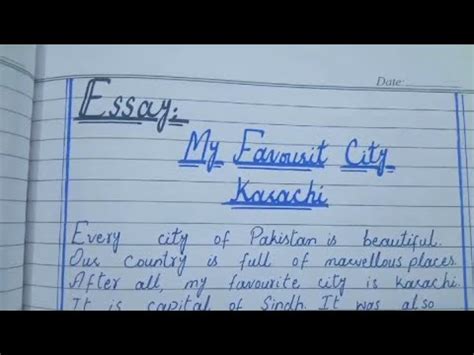 Date:
Essay:
My Favourit City
Karachi
Every city of Pakistan is beautiful.
Our country is full of marvellous places.
After all, my favourite city is Karachi.
It is capital of Sindh. It was also